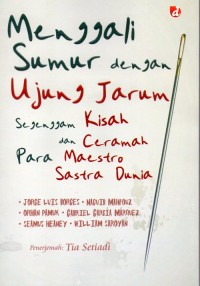 d
Menggali
Sumur dengan
Ujung Jarum
Segenggam Kisah
dan Ceramah
Para Maestro
Sastra Dunia
• JORGE LUIS BORGES • NAGUIB MAHFOUZ
• ORHAN PAMUK • GABRIEL GARCÍA MÁRQUEZ
• SEAMUS HEANEY • WILLIAM SAROYAN
Penerjemah: Tia Setiadi